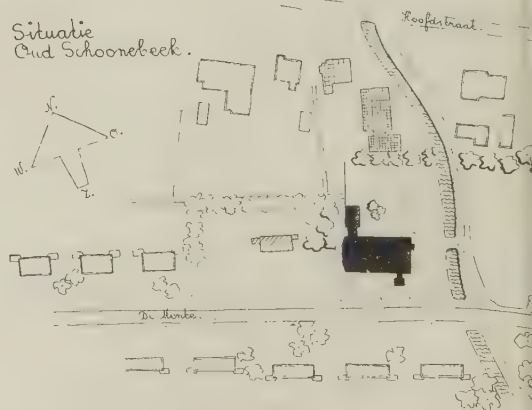 Situatie
Oud Schoonebeek.
Hoofdstraat.
N.
O.
W.
Z.
De